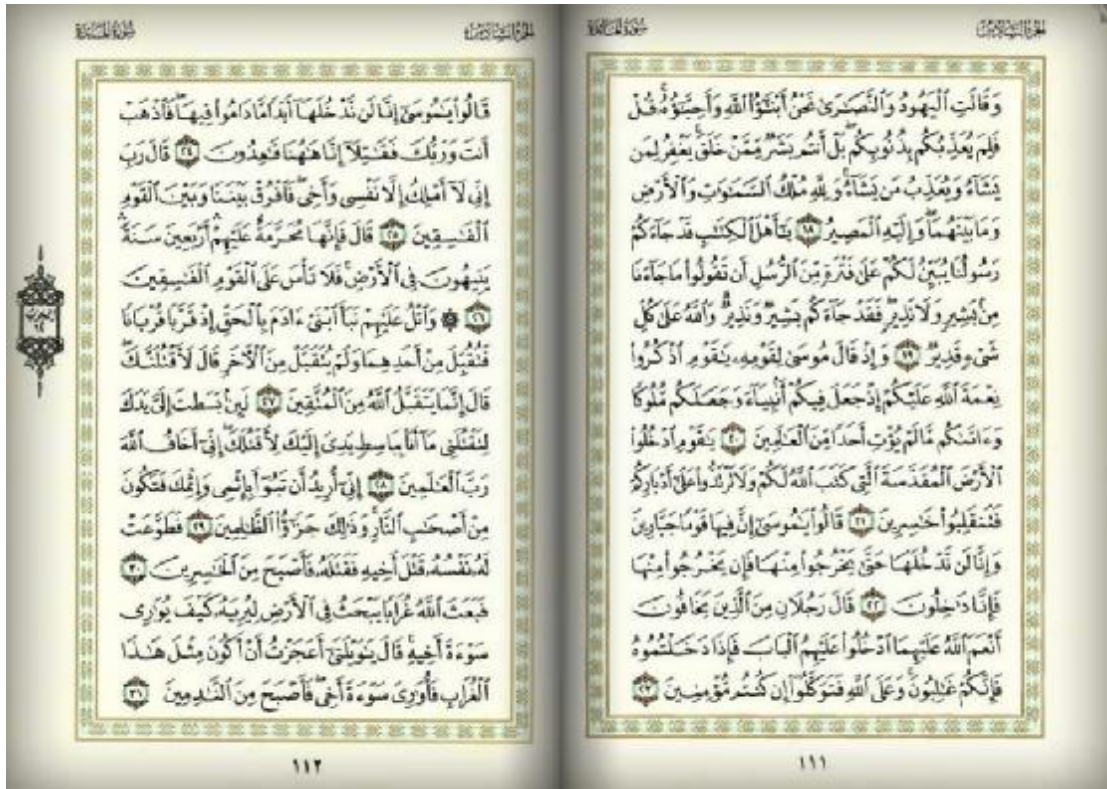 الجزء السادس سورة المائدة
وَقَالَتِ ٱلْيَهُودُ وَٱلنَّصَٰرَىٰ نَحْنُ أَبْنَٰٓؤُا۟ ٱللَّهِ وَأَحِبَّٰٓؤُهُۥ ۚ قُلْ
فَلِمَ يُعَذِّبُكُم بِذُنُوبِكُم ۖ بَلْ أَنتُم بَشَرٌ مِّمَّنْ خَلَقَ ۚ يَغْفِرُ لِمَن
يَشَآءُ وَيُعَذِّبُ مَن يَشَآءُ ۚ وَلِلَّهِ مُلْكُ ٱلسَّمَٰوَٰتِ وَٱلْأَرْضِ
وَمَا بَيْنَهُمَا ۖ وَإِلَيْهِ ٱلْمَصِيرُ ١٨ يَٰٓأَهْلَ ٱلْكِتَٰبِ قَدْ جَآءَكُمْ
رَسُولُنَا يُبَيِّنُ لَكُمْ عَلَىٰ فَتْرَةٍ مِّنَ ٱلرُّسُلِ أَن تَقُولُوا۟ مَا جَآءَنَا
مِنۢ بَشِيرٍ وَلَا نَذِيرٍ ۖ فَقَدْ جَآءَكُم بَشِيرٌ وَنَذِيرٌ ۗ وَٱللَّهُ عَلَىٰ كُلِّ
شَىْءٍ قَدِيرٌ ١٩ وَإِذْ قَالَ مُوسَىٰ لِقَوْمِهِۦ يَٰقَوْمِ ٱذْكُرُوا۟
نِعْمَةَ ٱللَّهِ عَلَيْكُمْ إِذْ جَعَلَ فِيكُمْ أَنۢبِيَآءَ وَجَعَلَكُم مُّلُوكًا
وَءَاتَىٰكُم مَّا لَمْ يُؤْتِ أَحَدًا مِّنَ ٱلْعَٰلَمِينَ ٢٠ يَٰقَوْمِ ٱدْخُلُوا۟
ٱلْأَرْضَ ٱلْمُقَدَّسَةَ ٱلَّتِى كَتَبَ ٱللَّهُ لَكُمْ وَلَا تَرْتَدُّوا۟ عَلَىٰٓ أَدْبَارِكُمْ
فَتَنقَلِبُوا۟ خَٰسِرِينَ ٢١ قَالُوا۟ يَٰمُوسَىٰٓ إِنَّ فِيهَا قَوْمًا جَبَّارِينَ
وَإِنَّا لَن نَّدْخُلَهَا حَتَّىٰ يَخْرُجُوا۟ مِنْهَا فَإِن يَخْرُجُوا۟ مِنْهَا
فَإِنَّا دَٰخِلُونَ ٢٢ قَالَ رَجُلَانِ مِنَ ٱلَّذِينَ يَخَافُونَ
أَنْعَمَ ٱللَّهُ عَلَيْهِمَا ٱدْخُلُوا۟ عَلَيْهِمُ ٱلْبَابَ فَإِذَا دَخَلْتُمُوهُ
فَإِنَّكُمْ غَٰلِبُونَ ۚ وَعَلَى ٱللَّهِ فَتَوَكَّلُوٓا۟ إِن كُنتُم مُّؤْمِنِينَ ٢٣
١١١
الجزء السادس سورة المائدة
قَالُوا۟ يَٰمُوسَىٰٓ إِنَّا لَن نَّدْخُلَهَآ أَبَدًا مَّا دَامُوا۟ فِيهَا ۖ فَٱذْهَبْ
أَنتَ وَرَبُّكَ فَقَٰتِلَآ إِنَّا هَٰهُنَا قَٰعِدُونَ ٢٤ قَالَ رَبِّ
إِنِّى لَآ أَمْلِكُ إِلَّا نَفْسِى وَأَخِى ۖ فَٱفْرُقْ بَيْنَنَا وَبَيْنَ ٱلْقَوْمِ
ٱلْفَٰسِقِينَ ٢٥ قَالَ فَإِنَّهَا مُحَرَّمَةٌ عَلَيْهِمْ ۛ أَرْبَعِينَ سَنَةً ۛ
يَتِيهُونَ فِى ٱلْأَرْضِ ۚ فَلَا تَأْسَ عَلَى ٱلْقَوْمِ ٱلْفَٰسِقِينَ
٢٦ ۞ وَٱتْلُ عَلَيْهِمْ نَبَأَ ٱبْنَىْ ءَادَمَ بِٱلْحَقِّ إِذْ قَرَّبَا قُرْبَانًا
فَتُقُبِّلَ مِنْ أَحَدِهِمَا وَلَمْ يُتَقَبَّلْ مِنَ ٱلْءَاخَرِ قَالَ لَأَقْتُلَنَّكَ ۖ
قَالَ إِنَّمَا يَتَقَبَّلُ ٱللَّهُ مِنَ ٱلْمُتَّقِينَ ٢٧ لَئِنۢ بَسَطتَ إِلَىَّ يَدَكَ
لِتَقْتُلَنِى مَآ أَنَا۠ بِبَاسِطٍ يَدِىَ إِلَيْكَ لِأَقْتُلَكَ ۖ إِنِّىٓ أَخَافُ ٱللَّهَ
رَبَّ ٱلْعَٰلَمِينَ ٢٨ إِنِّىٓ أُرِيدُ أَن تَبُوٓأَ بِإِثْمِى وَإِثْمِكَ فَتَكُونَ
مِنْ أَصْحَٰبِ ٱلنَّارِ ۚ وَذَٰلِكَ جَزَٰٓؤُا۟ ٱلظَّٰلِمِينَ ٢٩ فَطَوَّعَتْ
لَهُۥ نَفْسُهُۥ قَتْلَ أَخِيهِ فَقَتَلَهُۥ فَأَصْبَحَ مِنَ ٱلْخَٰسِرِينَ ٣٠
فَبَعَثَ ٱللَّهُ غُرَابًا يَبْحَثُ فِى ٱلْأَرْضِ لِيُرِيَهُۥ كَيْفَ يُوَٰرِى
سَوْءَةَ أَخِيهِ ۚ قَالَ يَٰوَيْلَتَىٰٓ أَعَجَزْتُ أَنْ أَكُونَ مِثْلَ هَٰذَا
ٱلْغُرَابِ فَأُوَٰرِىَ سَوْءَةَ أَخِى ۖ فَأَصْبَحَ مِنَ ٱلنَّٰدِمِينَ ٣١
الحزب
١٢
١١٢